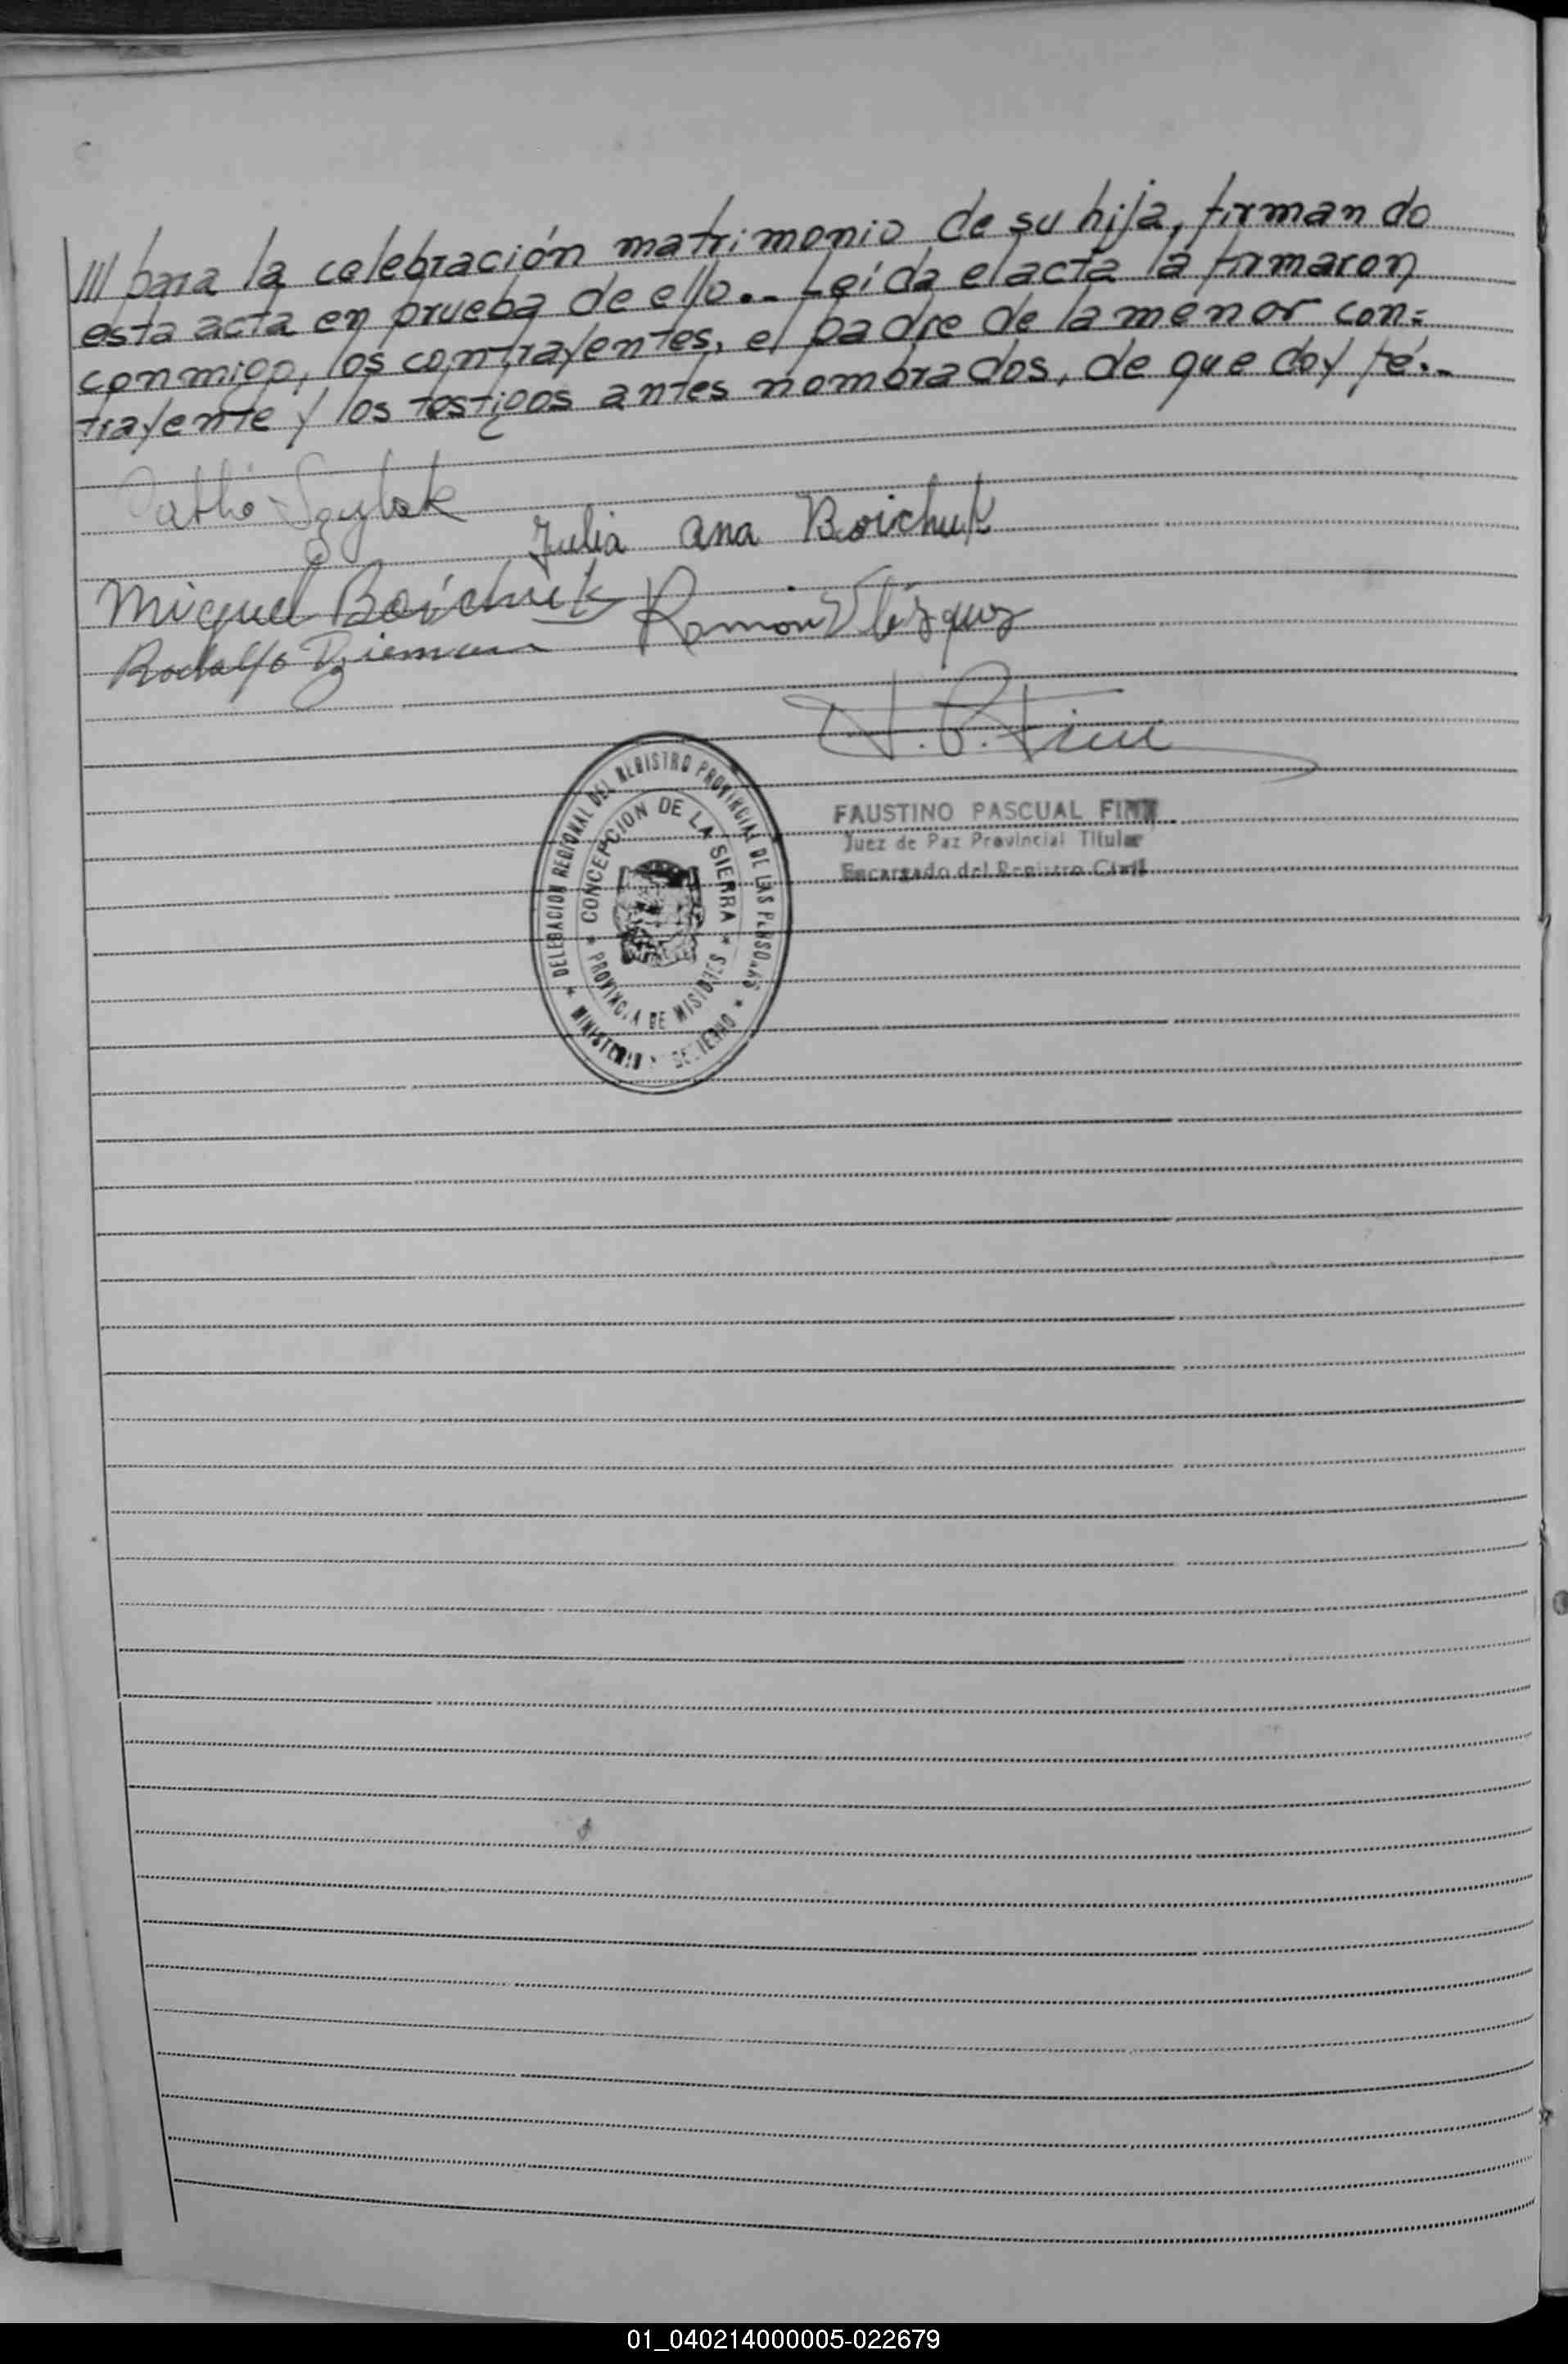 /// para la celebración matrimonio de su hija, firmando
esta acta en prueba de ello.- Leída el acta la firmaron
conmigo, los contrayentes, el padre de la menor con=
trayente y los testigos antes nombrados, de que doy fé.-
Julia Ana Boichuk
Miguel Boichuk
Ramón Blázquez
Rodolfo
F. P. Fink
FAUSTINO PASCUAL FINK
Juez de Paz Provincial Titular
Encargado del Registro Civil
DELEGACION REGIONAL DEL REGISTRO PROVINCIAL DE LAS PERSONAS
CONCEPCION DE LA SIERRA
PROVINCIA DE MISIONES
MINISTERIO GOBIERNO
01_040214000005-022679